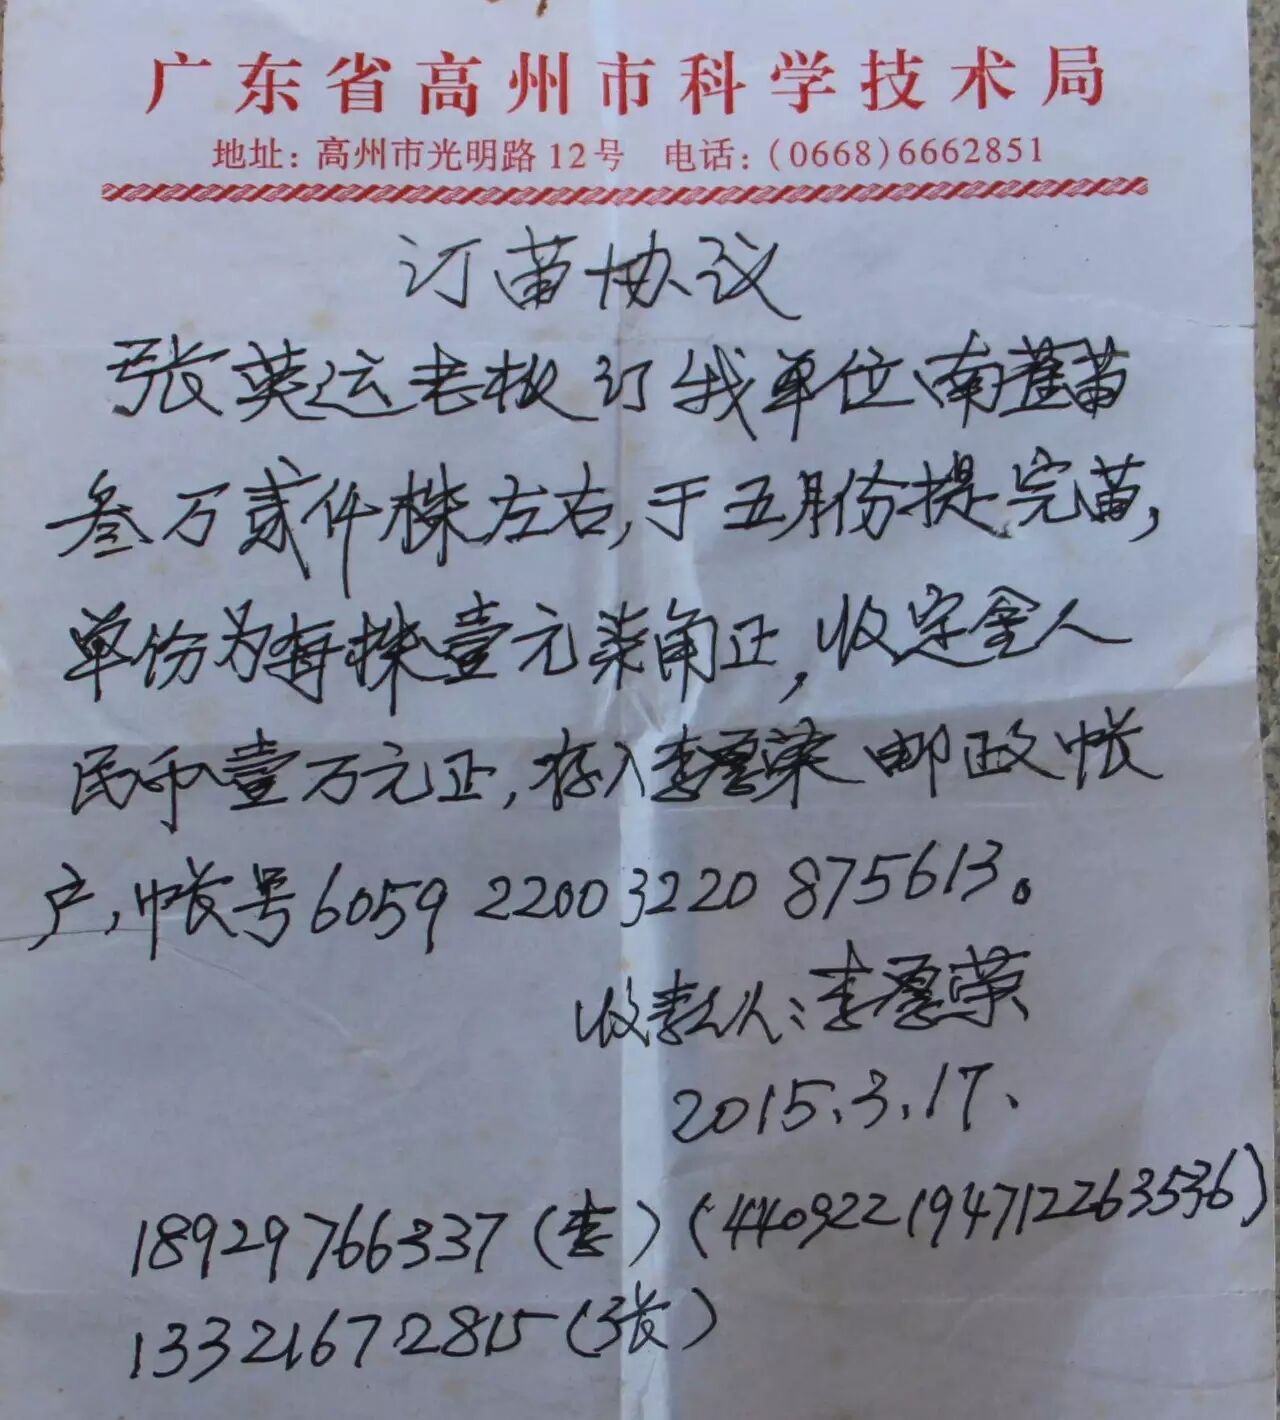 广东省高州市科学技术局
地址：高州市光明路12号 电话：(0668)6662851
订苗协议
张英运老板订我单位南苗
叁万贰仟株左右,于五月份提完苗,
单份为每株壹元柒角正,收定金人
民币壹万元正,存入李荣邮政帐
户,帐号6059 2200 3220 875613。
收款人:李荣
2015.3.17、
18929766337(李)(440922194712263536)
13321672815(张)